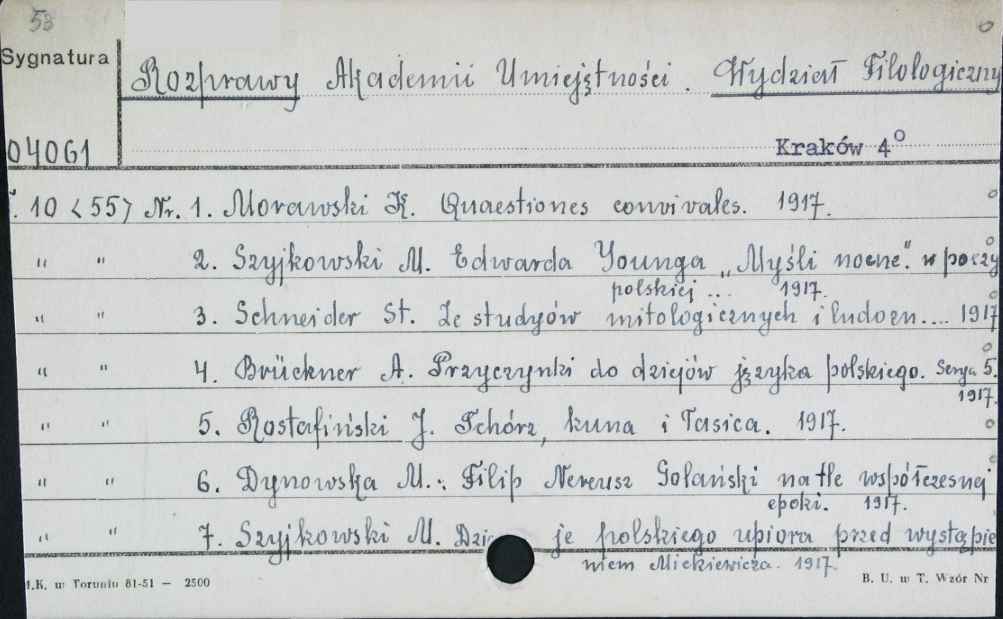 53
Sygnatura
Rozprawy Akademii Umiejętności. Wydział Filologiczny
04061
Kraków 4°
T. 10 <55> Nr. 1. Morawski K. Quaestiones convivales. 1917.
" " 2. Szyjkowski M. Edwarda Younga „Myśli nocne". w poezy
polskiej ... 1917.
" " 3. Schneider St. Ze studyów mitologicznych i ludozn.... 1917
" " 4. Brückner A. Przyczynki do dziejów języka polskiego. Serya 5.
1917.
" " 5. Rostafiński J. Tchórz, kuna i łasica. 1917.
" " 6. Dynowska M.: Filip Nereusz Golański na tle współczesnej
epoki. 1917.
" " 7. Szyjkowski M. Dzie je polskiego upiora przed wystąpie
niem Mickiewicza. 1917.
I.K. w Toruniu 81-51 — 2500
B. U. w T. Wzór Nr